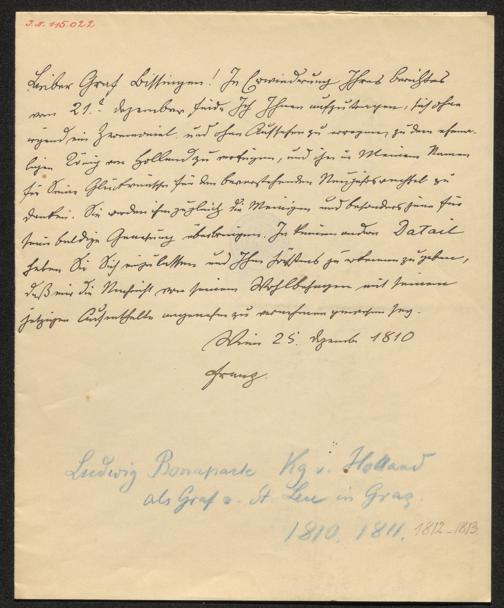 J.N. 115.022
Lieber Graf Bissingen! In Erwiederung Ihres Berichtes
vom 21.t Dezember finde Ich Ihnen aufzutragen, sich ohne
irgend ein Zeremoniel, und ohne Aufsehen zu erregen, zu dem ehema-
ligen König von Holland zu verfügen, und ihm in Meinem Namen
für Seine Glückwünsche für den bevorstehenden Neujahrswechsel zu
danken. Sie werden ihm zugleich die Meinigen und besonders jene für
seine baldige Genesung überbringen. In keinen andern Detail
haben Sie Sich einzulassen und Ihm höchstens zu erkennen zu geben,
daß mir die Nachricht von seinem Wohlbehagen mit seinem
jetzigen Aufenthalte angenehm zu vernehmen gewesen sey.
Wien 25. Dezember 1810
Franz.
Ludwig Bonaparte Kg v. Holland
als Graf v. St. Leu in Graz.
1810. 1811. 1812-1813.